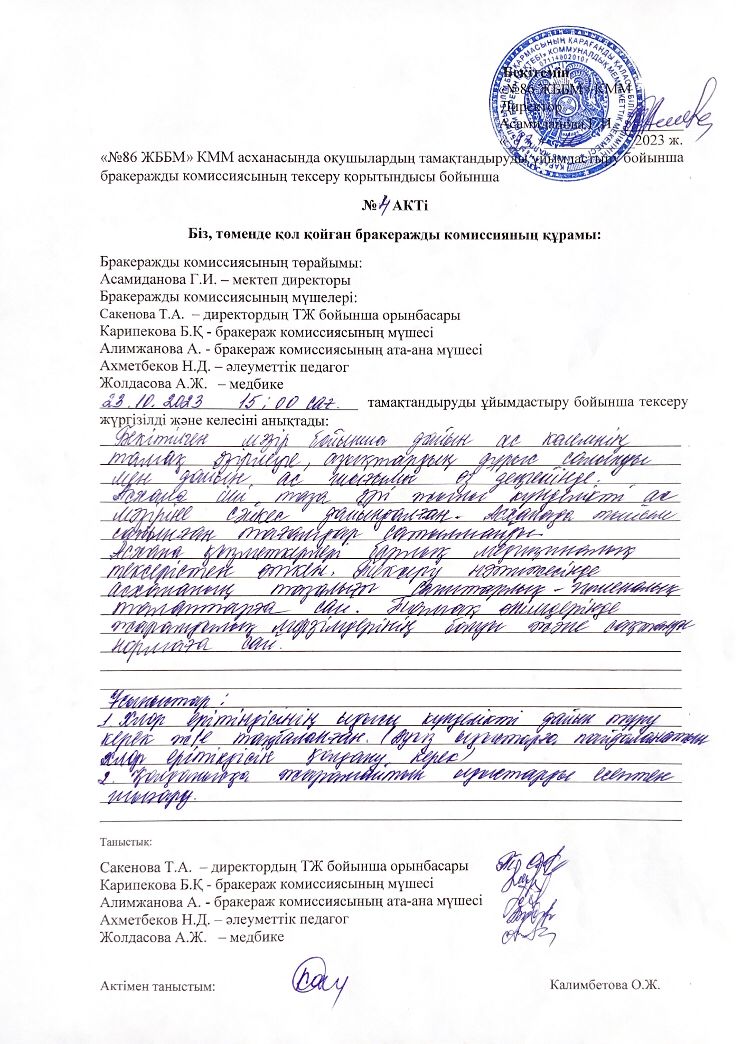 Бекітемін
«№86 ЖББМ» КММ
Директор
Асамиданова Г.И.
2023 ж.
«№86 ЖББМ» КММ асханасында оқушылардың тамақтандыруды ұйымдастыру бойынша
бракеражды комиссиясының тексеру қорытындысы бойынша
№4 АКТі
Біз, төменде қол қойған бракеражды комиссияның құрамы:
Бракеражды комиссиясының төрайымы:
Асамиданова Г.И. – мектеп директоры
Бракеражды комиссиясының мүшелері:
Сакенова Т.А. – директордың ТЖ бойынша орынбасары
Карипекова Б.Қ - бракераж комиссиясының мүшесі
Алимжанова А. - бракераж комиссиясының ата-ана мүшесі
Ахметбеков Н.Д. – әлеуметтік педагог
Жолдасова А.Ж. – медбике
23.10.2023 15:00 сағ. тамақтандыруды ұйымдастыру бойынша тексеру
жүргізілді және келесіні анықтады:
Бекітілген мәзір бойынша дайын ас көлемінің
тамақ әзірлеуде, азықтардың дұрыс салынуы
мен дайын ас шығымы өз деңгейінде.
Асхана іші таза күнделікті ас
мәзіріне сәйкес дайындалған. Асханада тыйым
салынған тағамдар сатылмайды.
Асхана қызметкерлері барлық медициналық
тексерістен өткен. Тексеру нәтижесінде
асхананың тазалығы санитарлық - гигиеналық
талаптарға сай. Тамақ өнімдерінде
жарамдылық мерзімдерінің болуы және сақталуы
нормаға сай.
Ұсыныстар:
1. Хлор ерітіндісінің ыдысы күнделікті дайын тұру
керек таңбаланған. ыдыстарға пайдаланатын
хлор ерітіндісін қолдану керек)
2. Қолданысқа жарамайтын ыдыстарды есептен
шығару.
Таныстық:
Сакенова Т.А. – директордың ТЖ бойынша орынбасары
Карипекова Б.Қ - бракераж комиссиясының мүшесі
Алимжанова А. - бракераж комиссиясының ата-ана мүшесі
Ахметбеков Н.Д. – әлеуметтік педагог
Жолдасова А.Ж. – медбике
Актімен таныстым: Калимбетова О.Ж.